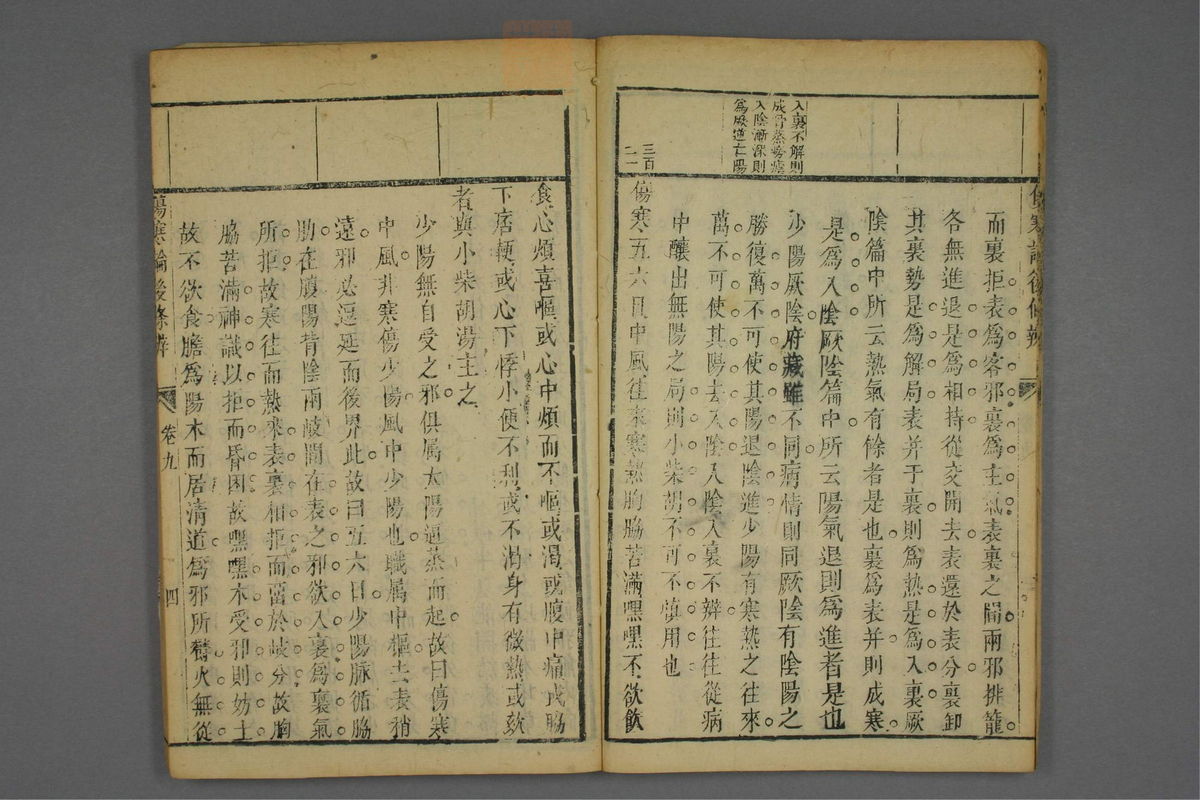 傷寒論後條辨
而裏拒表爲客邪裏爲主氣表裏之間兩邪排籠
各無進退是爲相持從交開去表還於表分裏卸
其裏勢是爲解局表并于裏則爲熱是爲入裏厥
陰篇中所云熱氣有餘者是也裏爲表并則成寒
是爲入陰厥陰篇中所云陽氣退則爲進者是也
少陽厥陰府藏雖不同病情則同厥陰有陰陽之
勝復萬不可使其陽退陰進少陽有寒熱之往來
萬不可使其陽去入陰入陰入裏不辨往往從病
中釀出無陽之局則小柴胡不可不慎用也
傷寒五六日中風往來寒熱胸脇苦滿嘿嘿不欲飲
入裏不解則
成骨蒸癆瘧
入陰漸深則
爲厥逆亡陽
三百
二一
食心煩喜嘔或心中煩而不嘔或渴或腹中痛或脇
下痞鞕或心下悸小便不利或不渴身有微熱或欬
者與小柴胡湯主之
少陽無自受之邪俱属太陽逼蒸而起故曰傷寒
中風非寒傷少陽風中少陽也職属中樞去表稍
遠邪必逗延而後界此故曰五六日少陽脉循脇
肋在腹陽背陰兩岐間在表之邪欲入裏爲裏氣
所拒故寒往而熱來表裏相拒而畱於岐分故胸
脇苦滿神識以拒而昏困故嘿嘿木受邪則妨土
故不欲食膽爲陽木而居清道爲邪所鬱火無從
傷寒論後條辨
卷九
四